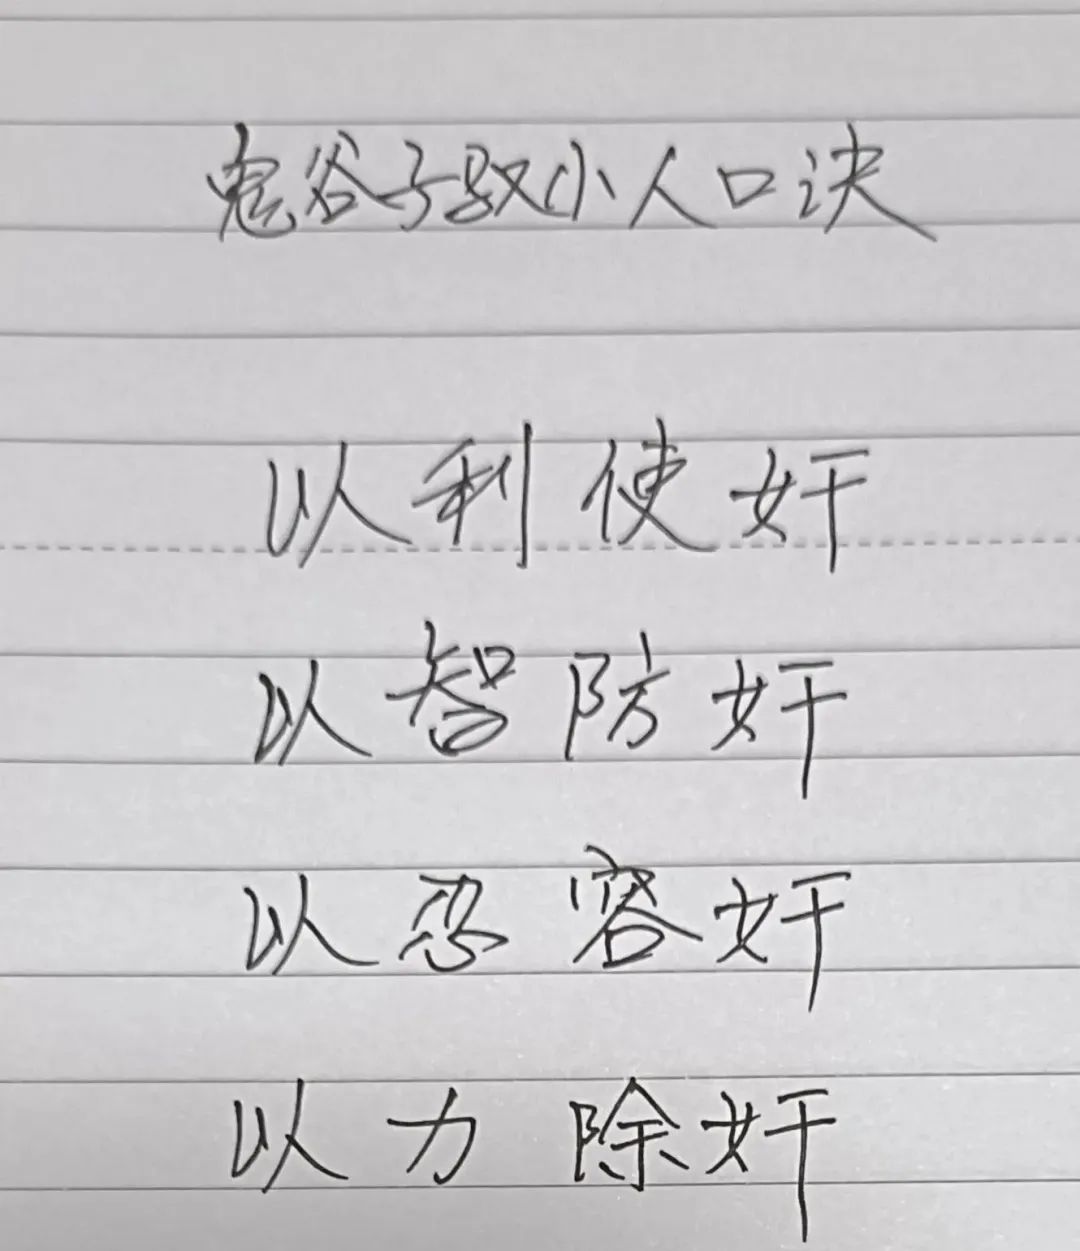 鬼谷子驭小人口诀
以利使奸
以智防奸
以忍容奸
以力除奸